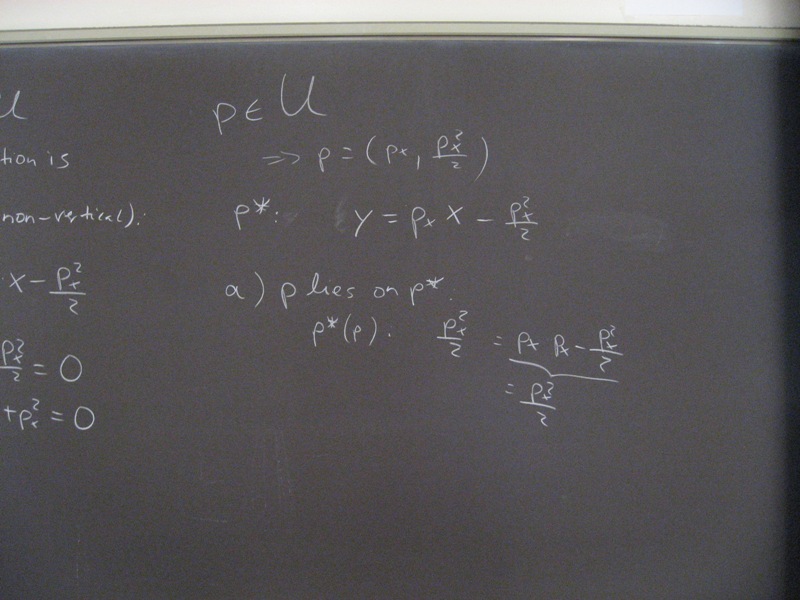 U
tion is
non-vertical).
x - pₓ²/2
pₓ²/2 = 0
+pₓ² = 0
p ∈ U
=> p = (pₓ, pₓ²/2)
p*: y = pₓ x - pₓ²/2
a) p lies on p*.
p*(p). pₓ²/2 = pₓ pₓ - pₓ²/2
= pₓ²/2